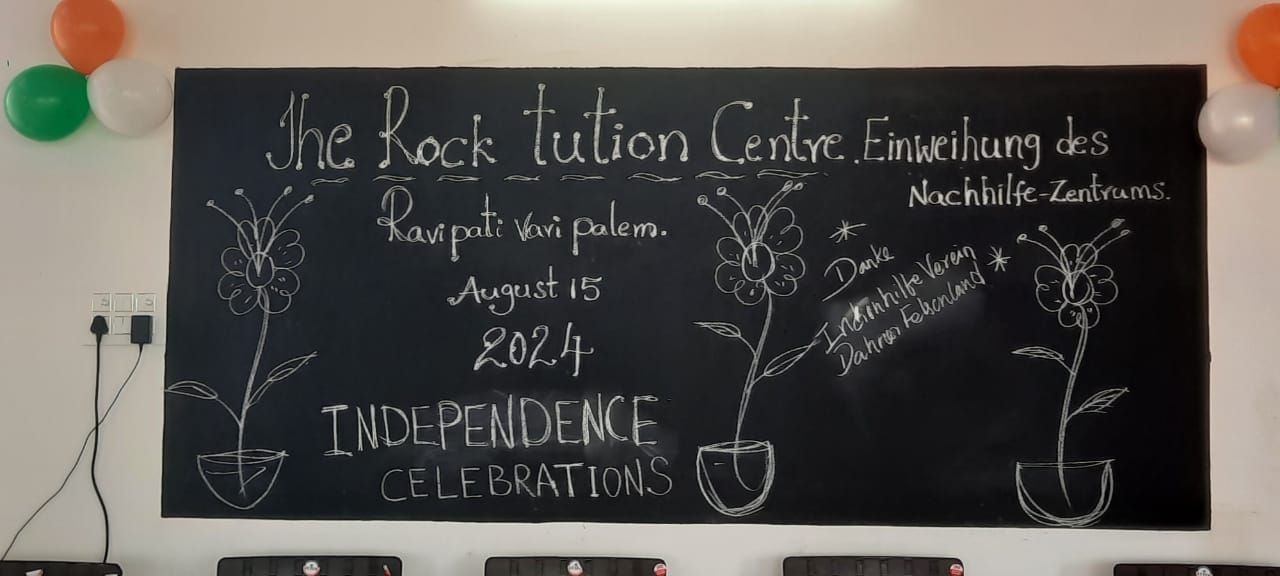 The Rock tution Centre. Einweihung des
Nachhilfe-Zentrums.
Ravipati Vari palem.
August 15
2024
INDEPENDENCE
CELEBRATIONS
* Danke *
Indienhilfe Verein
Dahner Felsenland